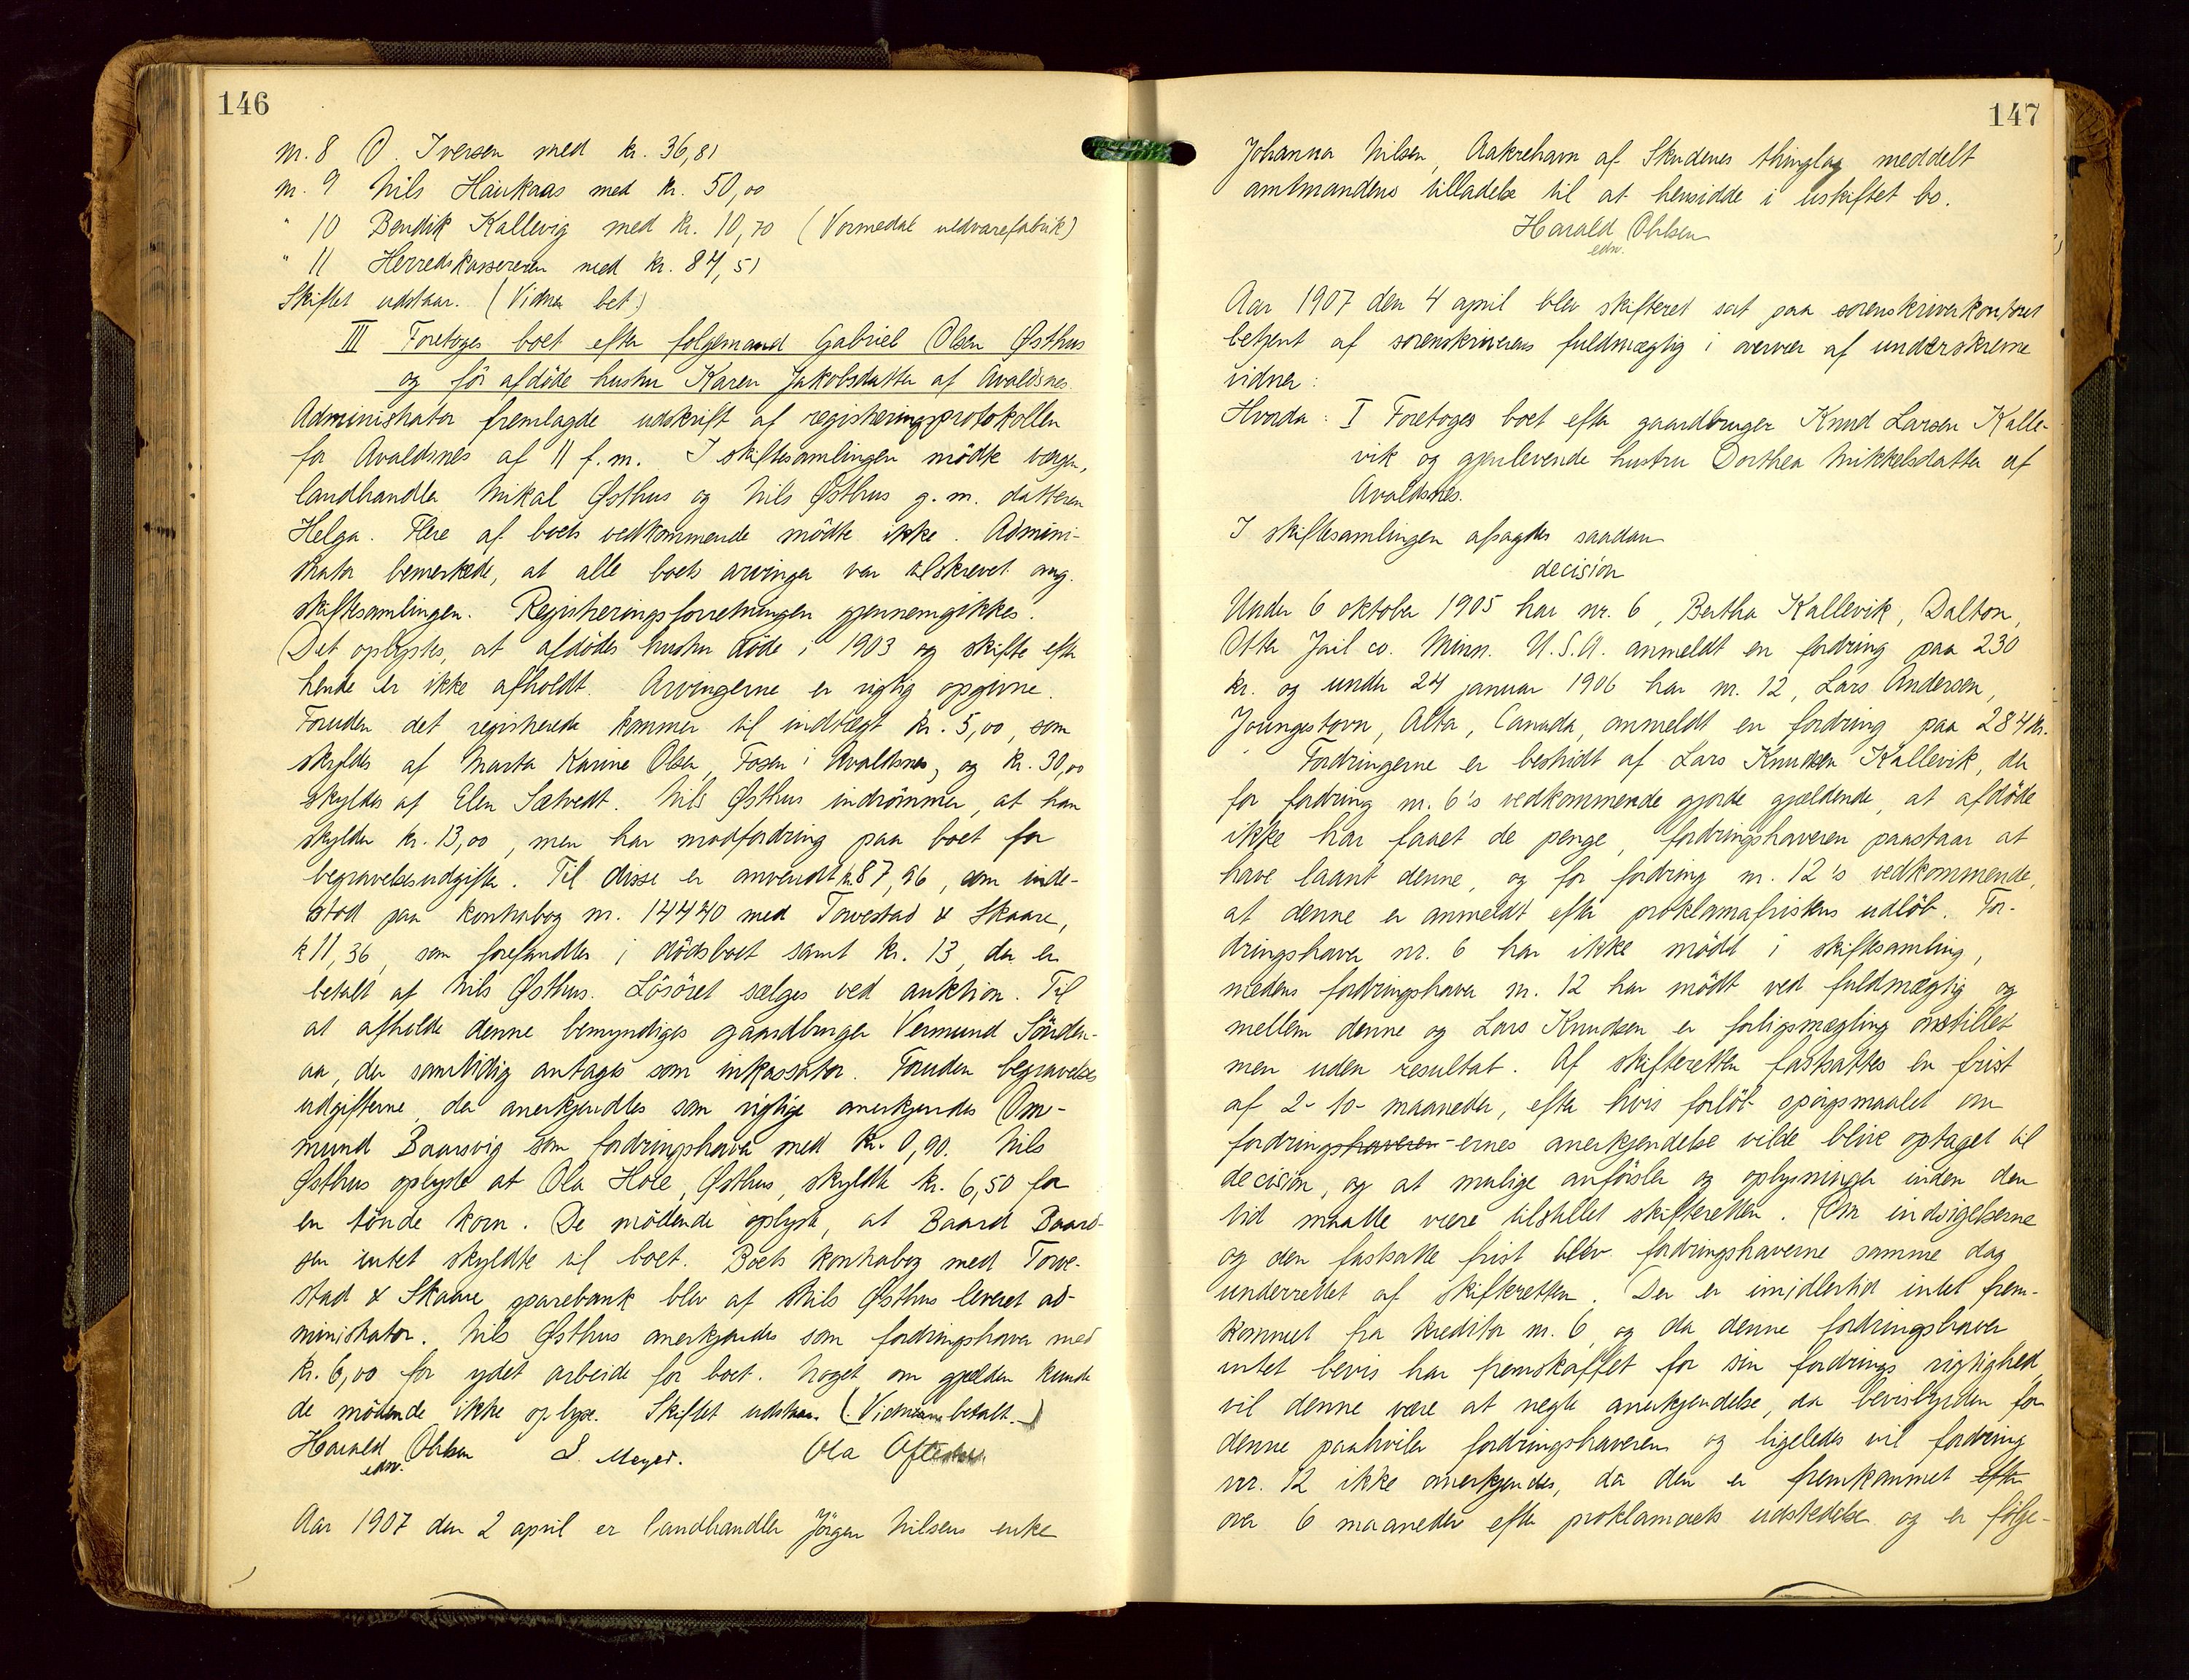 146
nr. 8 O. Iversen med kr. 36,81
nr. 9 Nils Haukaas med kr. 50,00
" 10 Bendik Kallevig med kr. 10,70 (Vormedal uldvarefabrik)
" 11 Herredskassereren med kr. 87,51
Skiftet udstaar. (Vidner bet.)
III Foretoges boet efter følgemand Gabriel Olsen Østhus
og før afdøde hustru Karen Jakobsdatter af Avaldsnes.
Administrator fremlagde udskrift af registreringsprotokollen
for Avaldsnes af 11 f.m. I skiftesamlingen mødte vergen,
landhandler Mikal Østhus og Nils Østhus g.m. datteren
Helga. Flere af boets vedkommende mødte ikke. Admini-
strator bemerkede, at alle boets arvinger var tilskrevet ang.
skiftesamlingen. Registreringsforretningen gjennemgikkes.
Det oplystes, at afdødes hustru døde i 1903 og skifte efter
hende er ikke afholdt. Arvingerne er rigtig opgivne.
Foruden det registrerede kommer til indtægt kr. 5,00, som
skyldes af Marta Karine Olsen, Fosen i Avaldsnes, og kr. 30,00
skyldes af Elen Sætvedt. Nils Østhus indrømmer, at han
skylder kr. 13,00, men har modfordring paa boet for
begravelsesudgifter. Til disse er anvendt kr. 87,96, som inde-
stod paa kontrabog nr. 14440 med Torvestad & Skaare,
kr 11,36, som forefandtes i dødsboet samt kr. 13, der er
betalt af Nils Østhus. Løsøret sælges ved auktion. Til
at afholde denne bemyndiges gaardbruger Vermund Sørden-
aa, der samtidig antages som inkassator. Foruden begravelses
udgifterne, der anerkjendtes som rigtige anerkjendes Om-
mund Baarsvig som fordringshaver med kr. 0,90. Nils
Østhus oplyste at Ola Hole, Østhus, skyldte kr. 6,50 for
en tønde korn. De mødende oplyste, at Baard Baard-
sen intet skyldte til boet. Boets kontrabog med Torve-
stad & Skaare sparebank blev af Nils Østhus leveret ad-
ministrator. Nils Østhus anerkjendes som fordringshaver med
kr. 6,00 for ydet arbeide for boet. Noget om gjælden kunde
de mødende ikke oplyse. Skiftet udstaar. (Vidnerne betalt.)
Harald Ohlsen S. Meyer. Ola
edsv.
Aar 1907 den 2 april er landhandler Jørgen Nilsens enke
147
Johanna Nilsen, Aakrehavn af Skudenes thinglag meddelt
amtmandens tilladelse til at hensidde i uskiftet bo.
Harald Ohlsen
edsv.
Aar 1907 den 4 april blev skifteret sat paa sorenskriverkontoret
betjent af sorenskriverens fuldmægtig i overvær af underskrevne
vidner:
Hvorda: I Foretoges boet efter gaardbruger Knud Larsen Kalle-
vik og gjenlevende hustru Dorthea Mikkelsdatter af
Avaldsnes.
I skiftesamlingen afsagdes saadan
decision
Under 6 oktober 1905 har nr. 6, Bertha Kallevik, Dalton,
Otter Jail co. Minn. U.S.A. anmeldt en fordring paa 230
kr. og under 24 januar 1906 har nr. 12, Lars Andersen,
Joungstovn, Alta, Canada, anmeldt en fordring paa 284 kr.
Fordringerne er bestridt af Lars Knudsen Kallevik, der
for fordring nr. 6's vedkommende gjorde gjældende, at afdøde
ikke har faaet de penge, fordringshaveren paastaar at
have laant denne, og for fordring nr. 12's vedkommende,
at denne er anmeldt efter proklamafristens udløb. For-
dringshaver nr. 6 har ikke mødt i skiftesamling,
medens fordringshaver nr. 12 har mødt ved fuldmægtig og
mellem denne og Lars Knudsen er forligsmægling anstillet
men uden resultat. Af skifteretten fastsattes en frist
af 2-to-maaneder, efter hvis forløb spørgsmaalet om
fordringshaveren-ernes anerkjendelse vilde blive optaget til
decision, og at mulige anførsler og oplysninger inden den
tid maatte være tilstillet skifteretten. Om indsigelserne
og den fastsatte frist blev fordringshaverne samme dag
underrettet af skifteretten. Der er imidlertid intet frem-
kommet fra kreditor nr. 6, og da denne fordringshaver
intet bevis har fremskaffet for sin fordrings rigtighed,
vil denne være at negte anerkjendelse, da bevisbyrden for
denne paahviler fordringshaveren og ligeledes vil fordring
nr. 12 ikke anerkjendes, da den er fremkommet efter
over 6 maaneder efter proklamaets udstedelse og er følge-